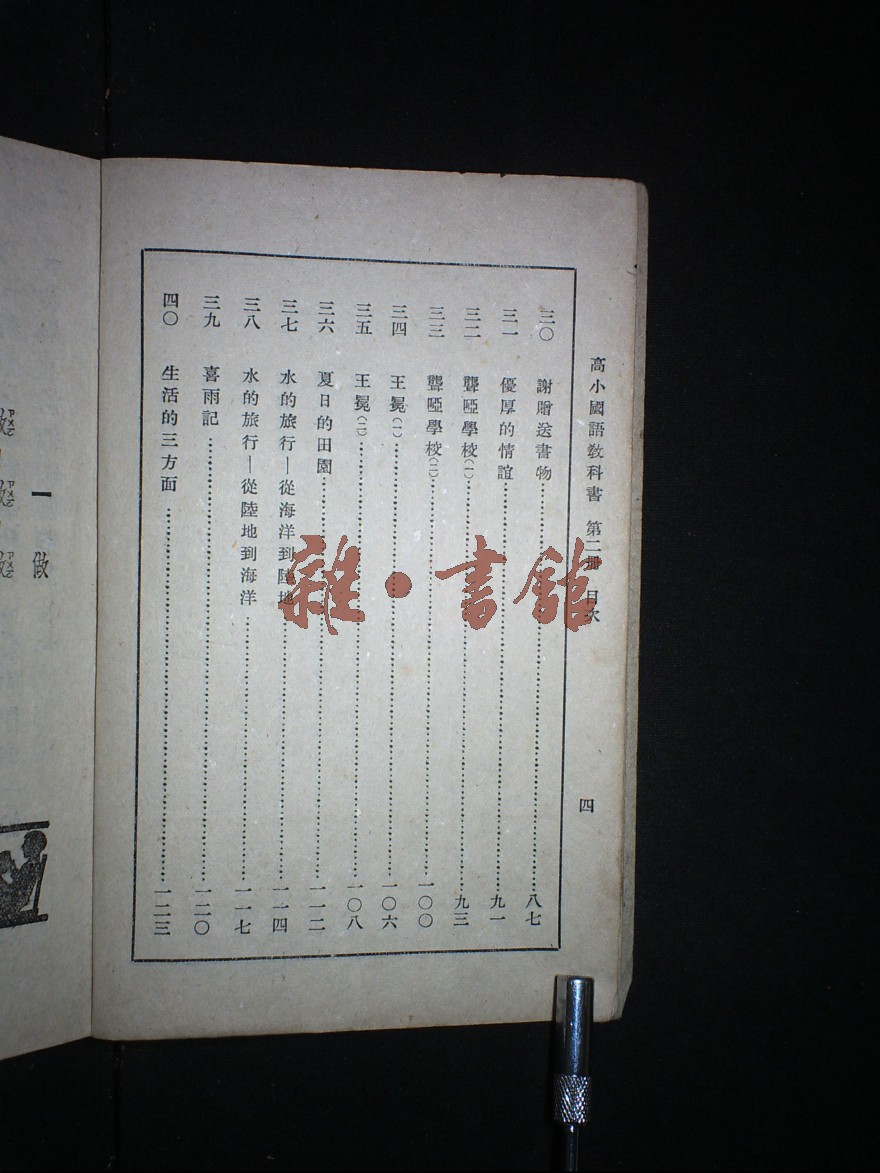 高小國語敎科書 第二册 目次 四
三〇 謝贈送書物 八七
三一 優厚的情誼 九一
三二 聾啞學校(一) 九三
三三 聾啞學校(二) 一〇〇
三四 王冕(一) 一〇六
三五 王冕(二) 一〇八
三六 夏日的田園 一一二
三七 水的旅行—從海洋到陸地 一一四
三八 水的旅行—從陸地到海洋 一一七
三九 喜雨記 一二〇
四〇 生活的三方面 一二三
雜·書館
一 做